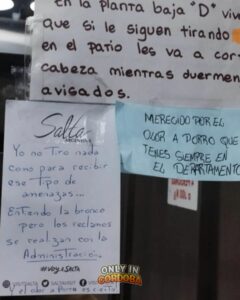 En la planta baja "D" viv
que si le siguen tirando
en el patio les va a cor
cabeza mientras duermen
avisados.
Salta
ARGENTINA
Yo no tiro nada
como para recibir
ese tipo de
amenazas...
Entiendo la bronca
pero los reclamos
se realizan con la
Administración..
#VoyaSalta
y el olor a Porro es
MERECIDO POR EL
OLOR A PORRO QUE
TENES SIEMPRE EN
EL DEPARTAMENTO
ONLY IN
CÓRDOBA